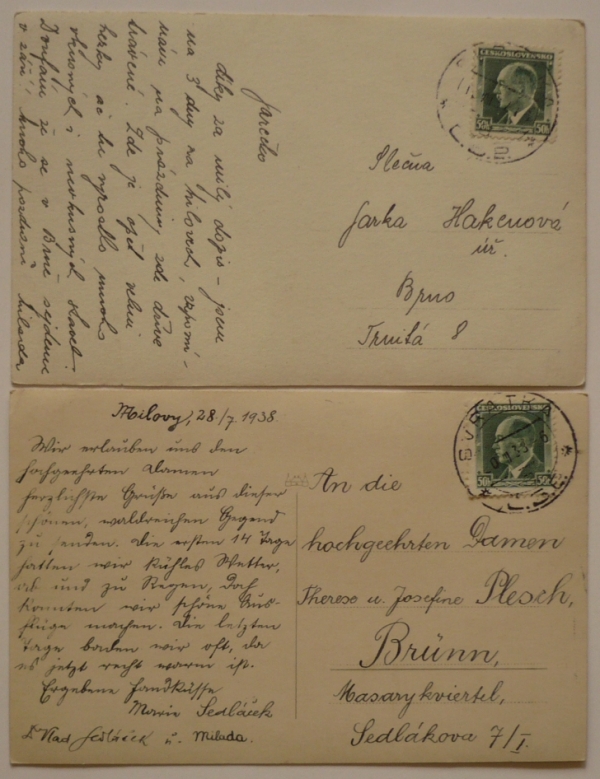 Jarečko
díky za milý dopis – jsme
na 3 dny na Milovech, vzpomí-
nám na prázdniny zde dříve
trávené. Zde je opět velmi
hezky
vkusných i nevkusných staveb.
Doufám že se v Brně sejdeme
v září. Mnoho pozdravů Milada
ČESKOSLOVENSKO
50h 50h
Slečna
Jarka Hakenová
úř.
Brno
Trnitá 8
Milovy, 28/7 1938.
Wir erlauben uns den
hochgeehrten Damen
herzlichste Grüße aus dieser
schönen, waldreichen Gegend
zu senden. Die ersten 14 Tage
hatten wir kühles Wetter,
ab und zu Regen, doch
konnten wir schöne Aus-
flüge machen. Die letzten
Tage baden wir oft, da
es jetzt recht warm ist.
Ergebene Handküsse
Marie Sedláček
Dr Vlad Sedláček u. Milada.
ČESKOSLOVENSKO
50h 50h
SVRATKA
An die
hochgeehrten Damen
Therese u. Josefine Plesch,
Brünn,
Masarykviertel,
Sedlákova 7/I.